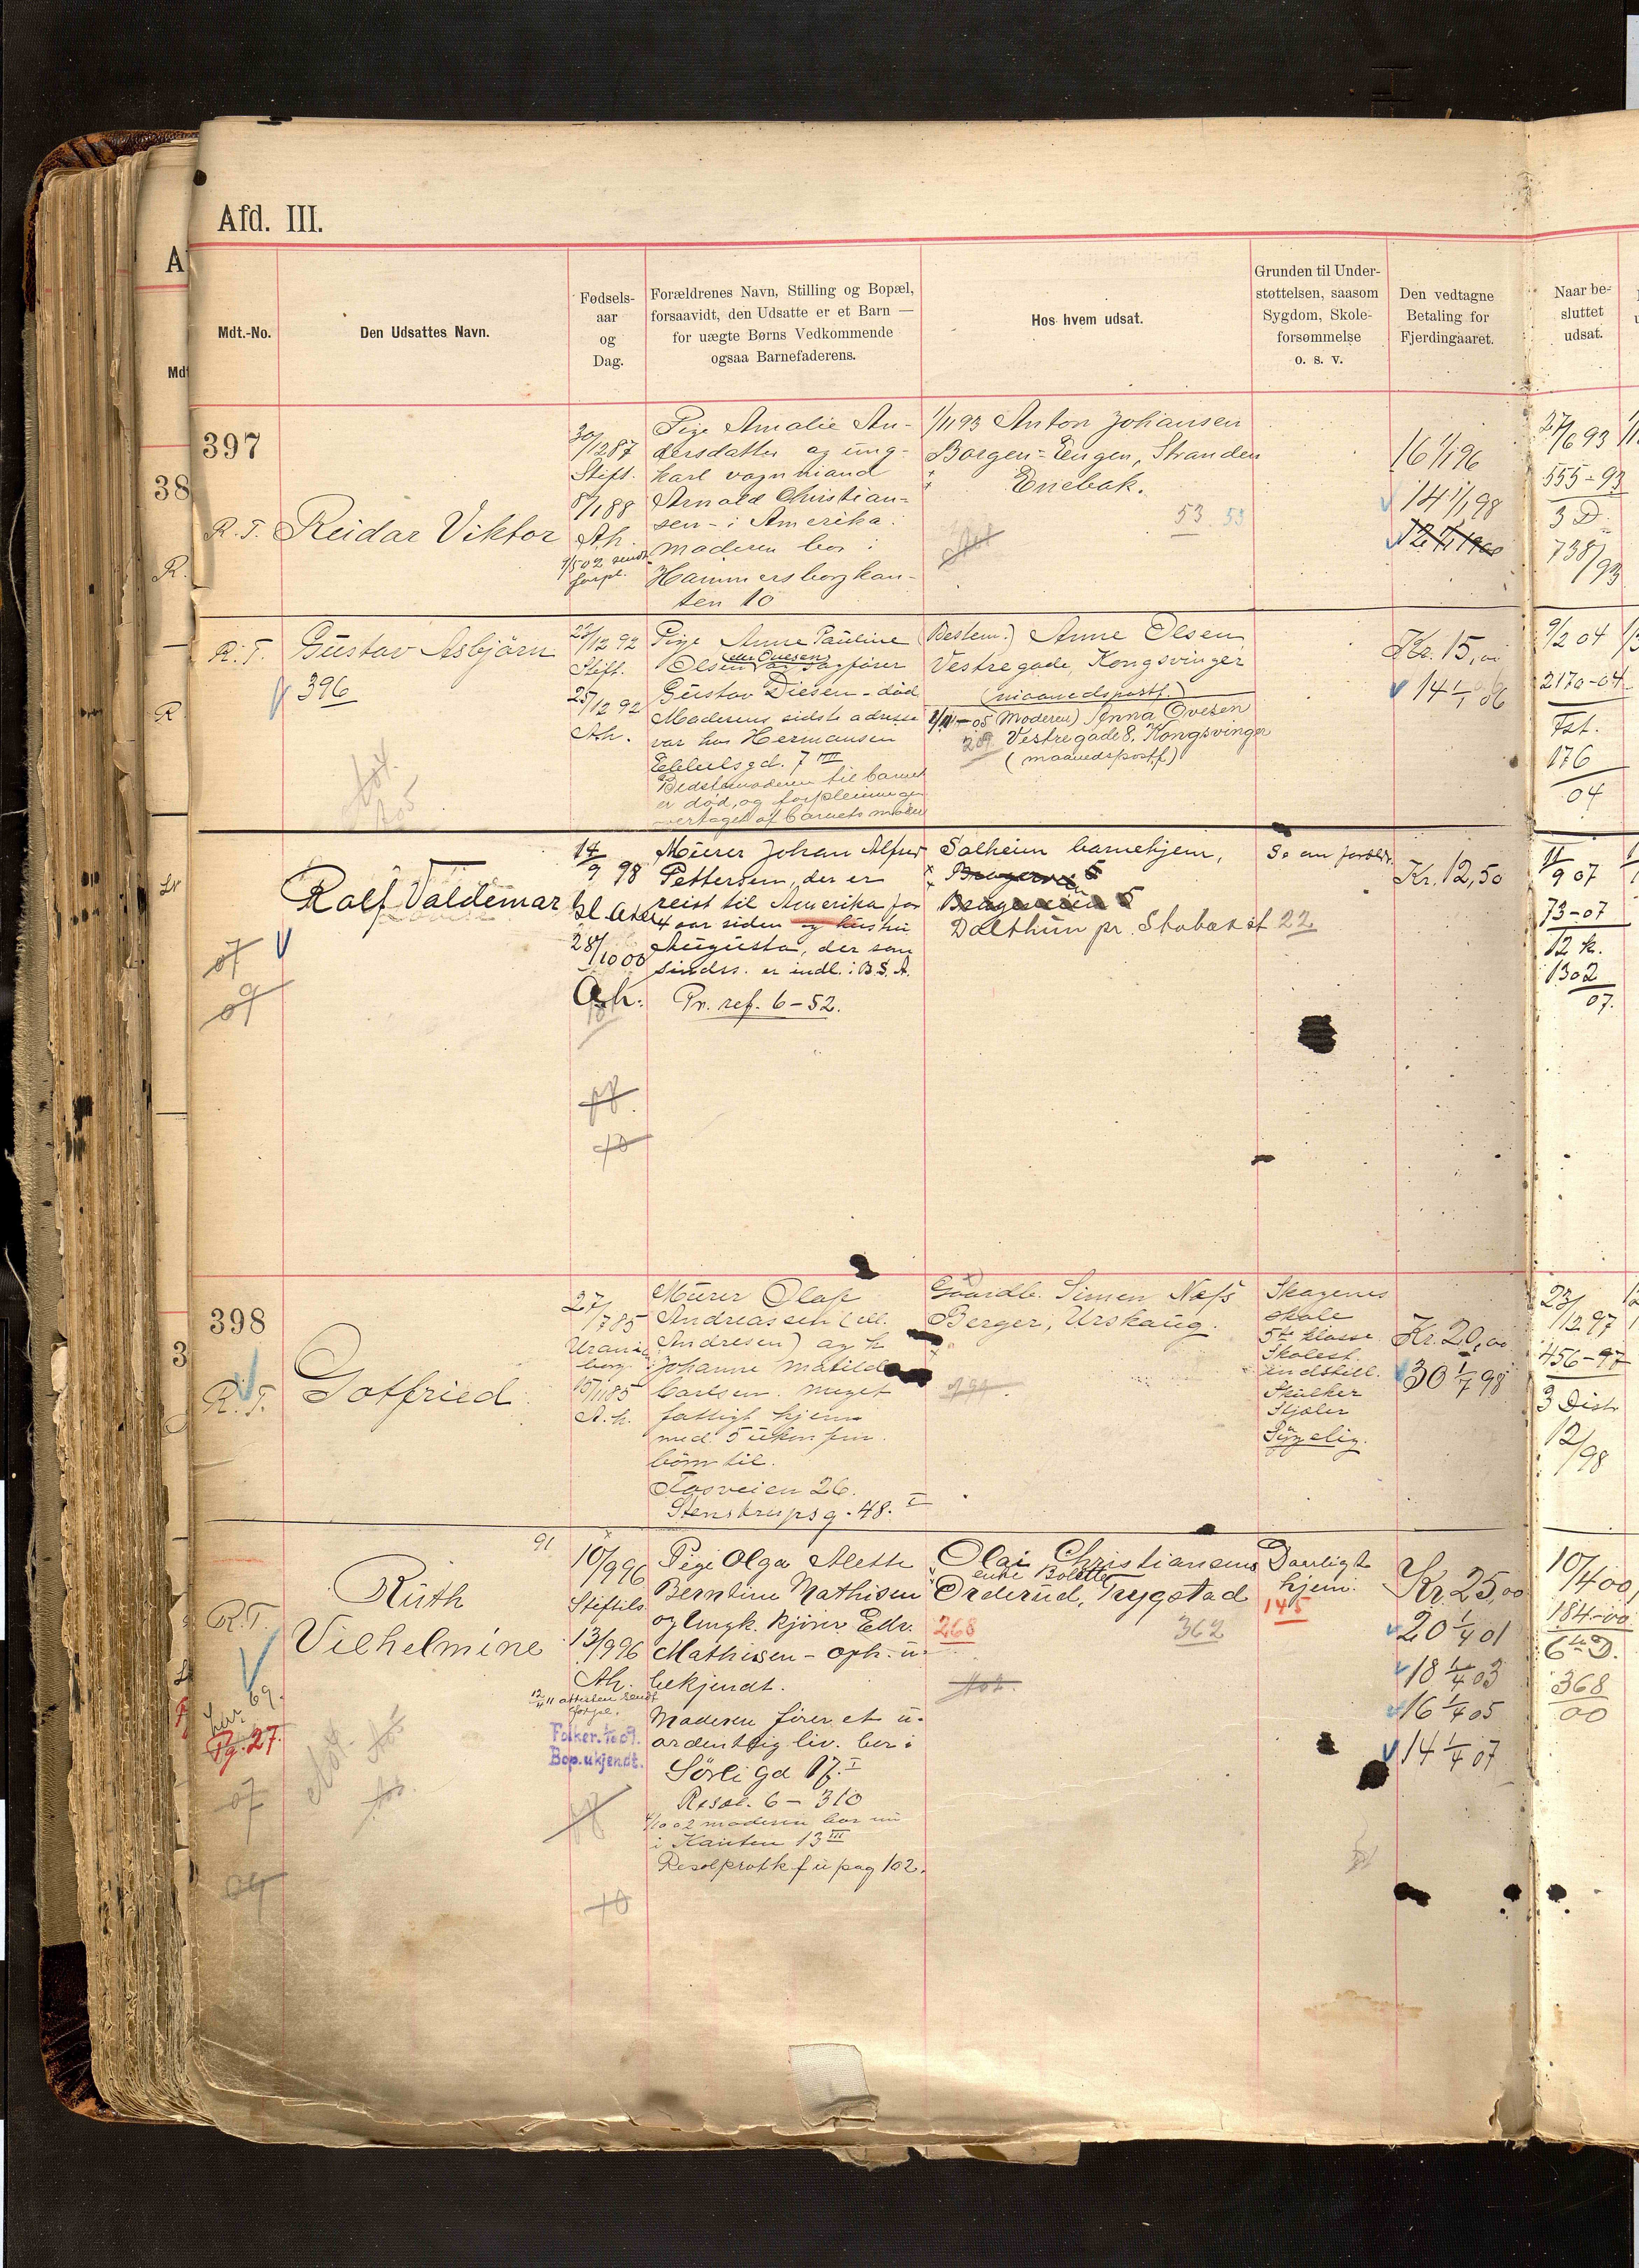 Afd. III.
Mdt.-No.
Den Udsattes Navn.
Fødsels-
aar
og
Dag.
Forældrenes Navn, Stilling og Bopæl,
forsaavidt, den Udsatte er et Barn —
for uægte Børns Vedkommende
ogsaa Barnefaderens.
Hos hvem udsat.
Grunden til Under-
støttelsen, saasom
Sygdom, Skole-
forsømmelse
o. s. v.
Den vedtagne
Betaling for
Fjerdingaaret.
Naar be-
sluttet
udsat.
397
R. T. Reidar Viktor
30/12 87
Stift.
8/1 88
Ah.
9/5 02 sendt
forpl.
Pige Amalie An-
dersdatter og ung-
karl vognmand
Arnold Christian-
sen - i Amerika.
Moderen bor i
Hammersborgkan-
ten 10
1/11 93 Anton Johansen
Borgen-Engen, Stranden
Enebak.
53 53
16 1/1 96
14 1/1 98
12 1/1 1900
27/6 93
555-93
3 D.
738/93
R. T. Gustav Asbjørn
396
23/12 92
Stift.
25/12 92
Ah.
Pige Anne Pauline
Olsen (eller Ovesen) og sagfører
Gustav Diesen - død
Moderens sidste adresse
var hos Hermansen
7 III
Bedstemoderen til barnet
er død, og forpleiningen
overtaget af barnets moder
(Bestem.) Anne Olsen
Vestregade, Kongsvinger
(maanedspostf.)
05 (Moderen) Anna Ovesen
209 Vestregade 8. Kongsvinger
(maanedspostf)
Kr. 15,00
14 1/1 06
9/2 04
2170-04
Fst.
176
04
Rolf Valdemar
07
09
14/9 98
Gl. Aker
28/10 00
Ah.
Murer Johan Alfred
Pettersen, der er
reist til Amerika for
4 aar siden og hustru
Augusta, der som
sindss. er indl. i B. S. A.
Pr. ref. 6-52.
Solheim barnehjem,
Dalthun pr. Skabak st 22
Kr. 12,50
11/9 07
73-07
12 k.
1302
07.
398
R. T. Gotfried
27/7 85
Uranien
borg
15/11 85
A. h.
Murer Olaf
Andreassen (ell.
Andresen) og h
Johanne Matilde
Carlsen. Meget
fattigt hjem
med 5 ukonfirm.
børn til.
Stenstrupsg. 48. I
Gaardb. Simen Næss
Berger, Urskaug.
Skagens
skole
5te klasse
Skolest.
indstill.
Skulker
Stjæler
Sygelig.
Kr. 20,00
30 1/7 98
23/12 97
456-97
3 Distr
12/98
91
R. T.
Ruth
Vilhelmine
69.
Pg. 27.
07
09
10/9 96
Stiftels.
13/9 96
Ah.
12/4 11 attesten sendt
forpl.
Folker. 1/10 09.
Bop. ukjendt.
10
Pige Olga Alette
Berntine Mathisen
og Ungk. kjører Edv.
Mathisen - oph. u-
bekjendt.
Moderen fører et u-
ordentlig liv. bor i
Sørligd 17. I
Resol. 6 - 310
4/10 02 moderen bor nu
i Kanten 13 III
Resolprotk f u pag 102.
Olai Christiansens
enke Bolette
Orderud, Trygstad
268
362
Daarligt
hjem.
145
Kr. 25,00
20 1/4 01
18 1/4 03
16 1/4 05
14 1/4 07
10/4 00
184-00
6te D.
368
00